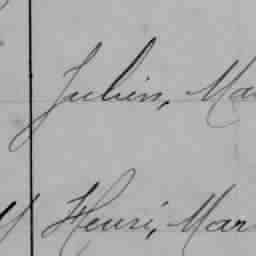 Julien, Ma
Henri, Mar